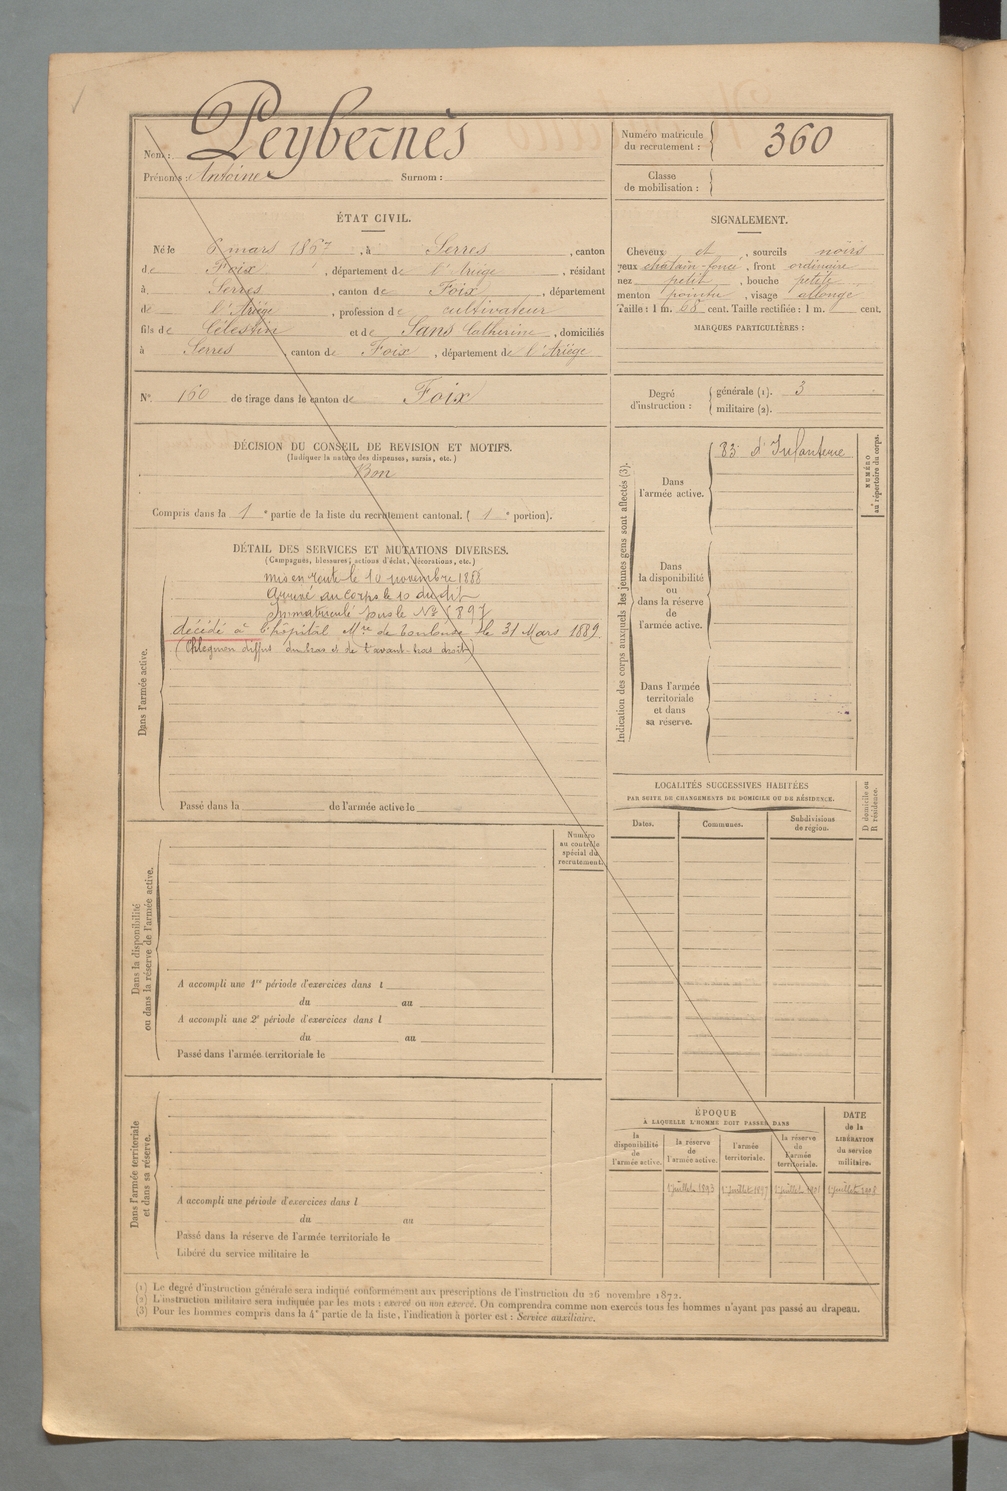 Nom : Peybernès
Prénoms : Antoine Surnom :
Numéro matricule du recrutement : 360
Classe de mobilisation :
ÉTAT CIVIL.
Né le 6 mars 1867, à Serres, canton
de Foix, département de l'Ariège, résidant
à Serres, canton de Foix, département
de l'Ariège, profession de cultivateur
fils de Célestin et de Sans Catherine, domiciliés
à Serres, canton de Foix, département de l'Ariège
N° 160 de tirage dans le canton de Foix
SIGNALEMENT.
Cheveux et, sourcils noirs
yeux chatain-foncé, front ordinaire
nez petit, bouche petite
menton pointu, visage allongé
Taille : 1 m. cent. Taille rectifiée : 1 m. cent.
MARQUES PARTICULIÈRES :
Degré d'instruction : générale (1). 3
militaire (2).
DÉCISION DU CONSEIL DE REVISION ET MOTIFS.
(Indiquer la nature des dispenses, sursis, etc.)
Bon
Compris dans la 1e partie de la liste du recrutement cantonal. ( 1e portion).
DÉTAIL DES SERVICES ET MUTATIONS DIVERSES.
(Campagnes, blessures, actions d'éclat, décorations, etc.)
Mis en route le 10 novembre 1888
Arrivé au corps le 10 du dit
Immatriculé sous le N°
décédé à l'hôpital Mre de Toulouse le 31 Mars 1889.
(Phlegmon diffus du bras et de l'avant-bras droit)
Dans l'armée active.
Passé dans la de l'armée active le
Indication des corps auxquels les jeunes gens sont affectés (3).
Dans l'armée active.
83e d'Infanterie
NUMÉRO au répertoire du corps.
Dans la disponibilité ou dans la réserve de l'armée active.
Dans l'armée territoriale et dans sa réserve.
LOCALITÉS SUCCESSIVES HABITÉES
PAR SUITE DE CHANGEMENTS DE DOMICILE OU DE RÉSIDENCE.
Dates. Communes. Subdivisions de région.
D domicile ou R résidence.
Numéro au contrôle spécial du recrutement.
Dans la disponibilité ou dans la réserve de l'armée active.
A accompli une 1re période d'exercices dans l
du au
A accompli une 2e période d'exercices dans l
du au
Passé dans l'armée territoriale le
Dans l'armée territoriale et dans sa réserve.
A accompli une période d'exercices dans l
du au
Passé dans la réserve de l'armée territoriale le
Libéré du service militaire le
ÉPOQUE
À LAQUELLE L'HOMME DOIT PASSER DANS
la disponibilité de l'armée active.
la réserve de l'armée active.
l'armée territoriale.
la réserve de l'armée territoriale.
DATE de la LIBÉRATION du service militaire.
1 juillet 1893 1 juillet 1897 1 juillet 1 juillet
(1) Le degré d'instruction générale sera indiqué conformément aux prescriptions de l'instruction du 26 novembre 1872.
(2) L'instruction militaire sera indiquée par les mots : exercé ou non exercé. On comprendra comme non exercés tous les hommes n'ayant pas passé au drapeau.
(3) Pour les hommes compris dans la 4e partie de la liste, l'indication à porter est : Service auxiliaire.